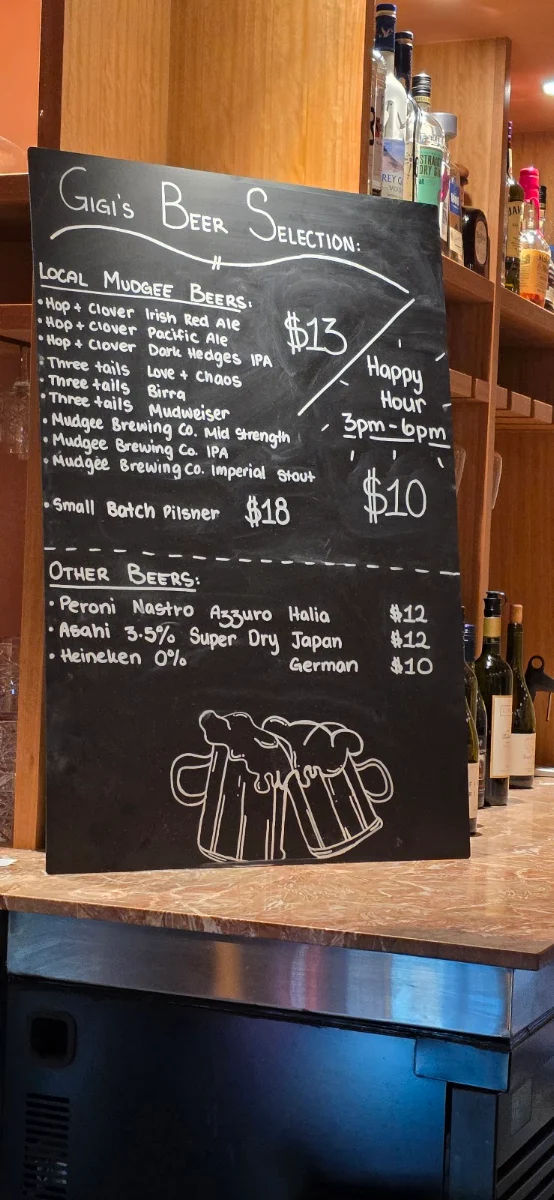 GIGI'S BEER SELECTION:
LOCAL MUDGEE BEERS:
• Hop + Clover Irish Red Ale
• Hop + Clover Pacific Ale
• Hop + Clover Dark Hedges IPA
• Three tails Love + Chaos
• Three tails Birra
• Three tails Mudweiser
• Mudgee Brewing Co. Mid Strength
• Mudgee Brewing Co. IPA
• Mudgee Brewing Co. Imperial Stout
$13
Happy
Hour
3pm-6pm
$10
• Small Batch Pilsner $18
OTHER BEERS:
• Peroni Nastro Azzuro Italia $12
• Asahi 3.5% Super Dry Japan $12
• Heineken 0% German $10
REY G
STRAIG
DRY